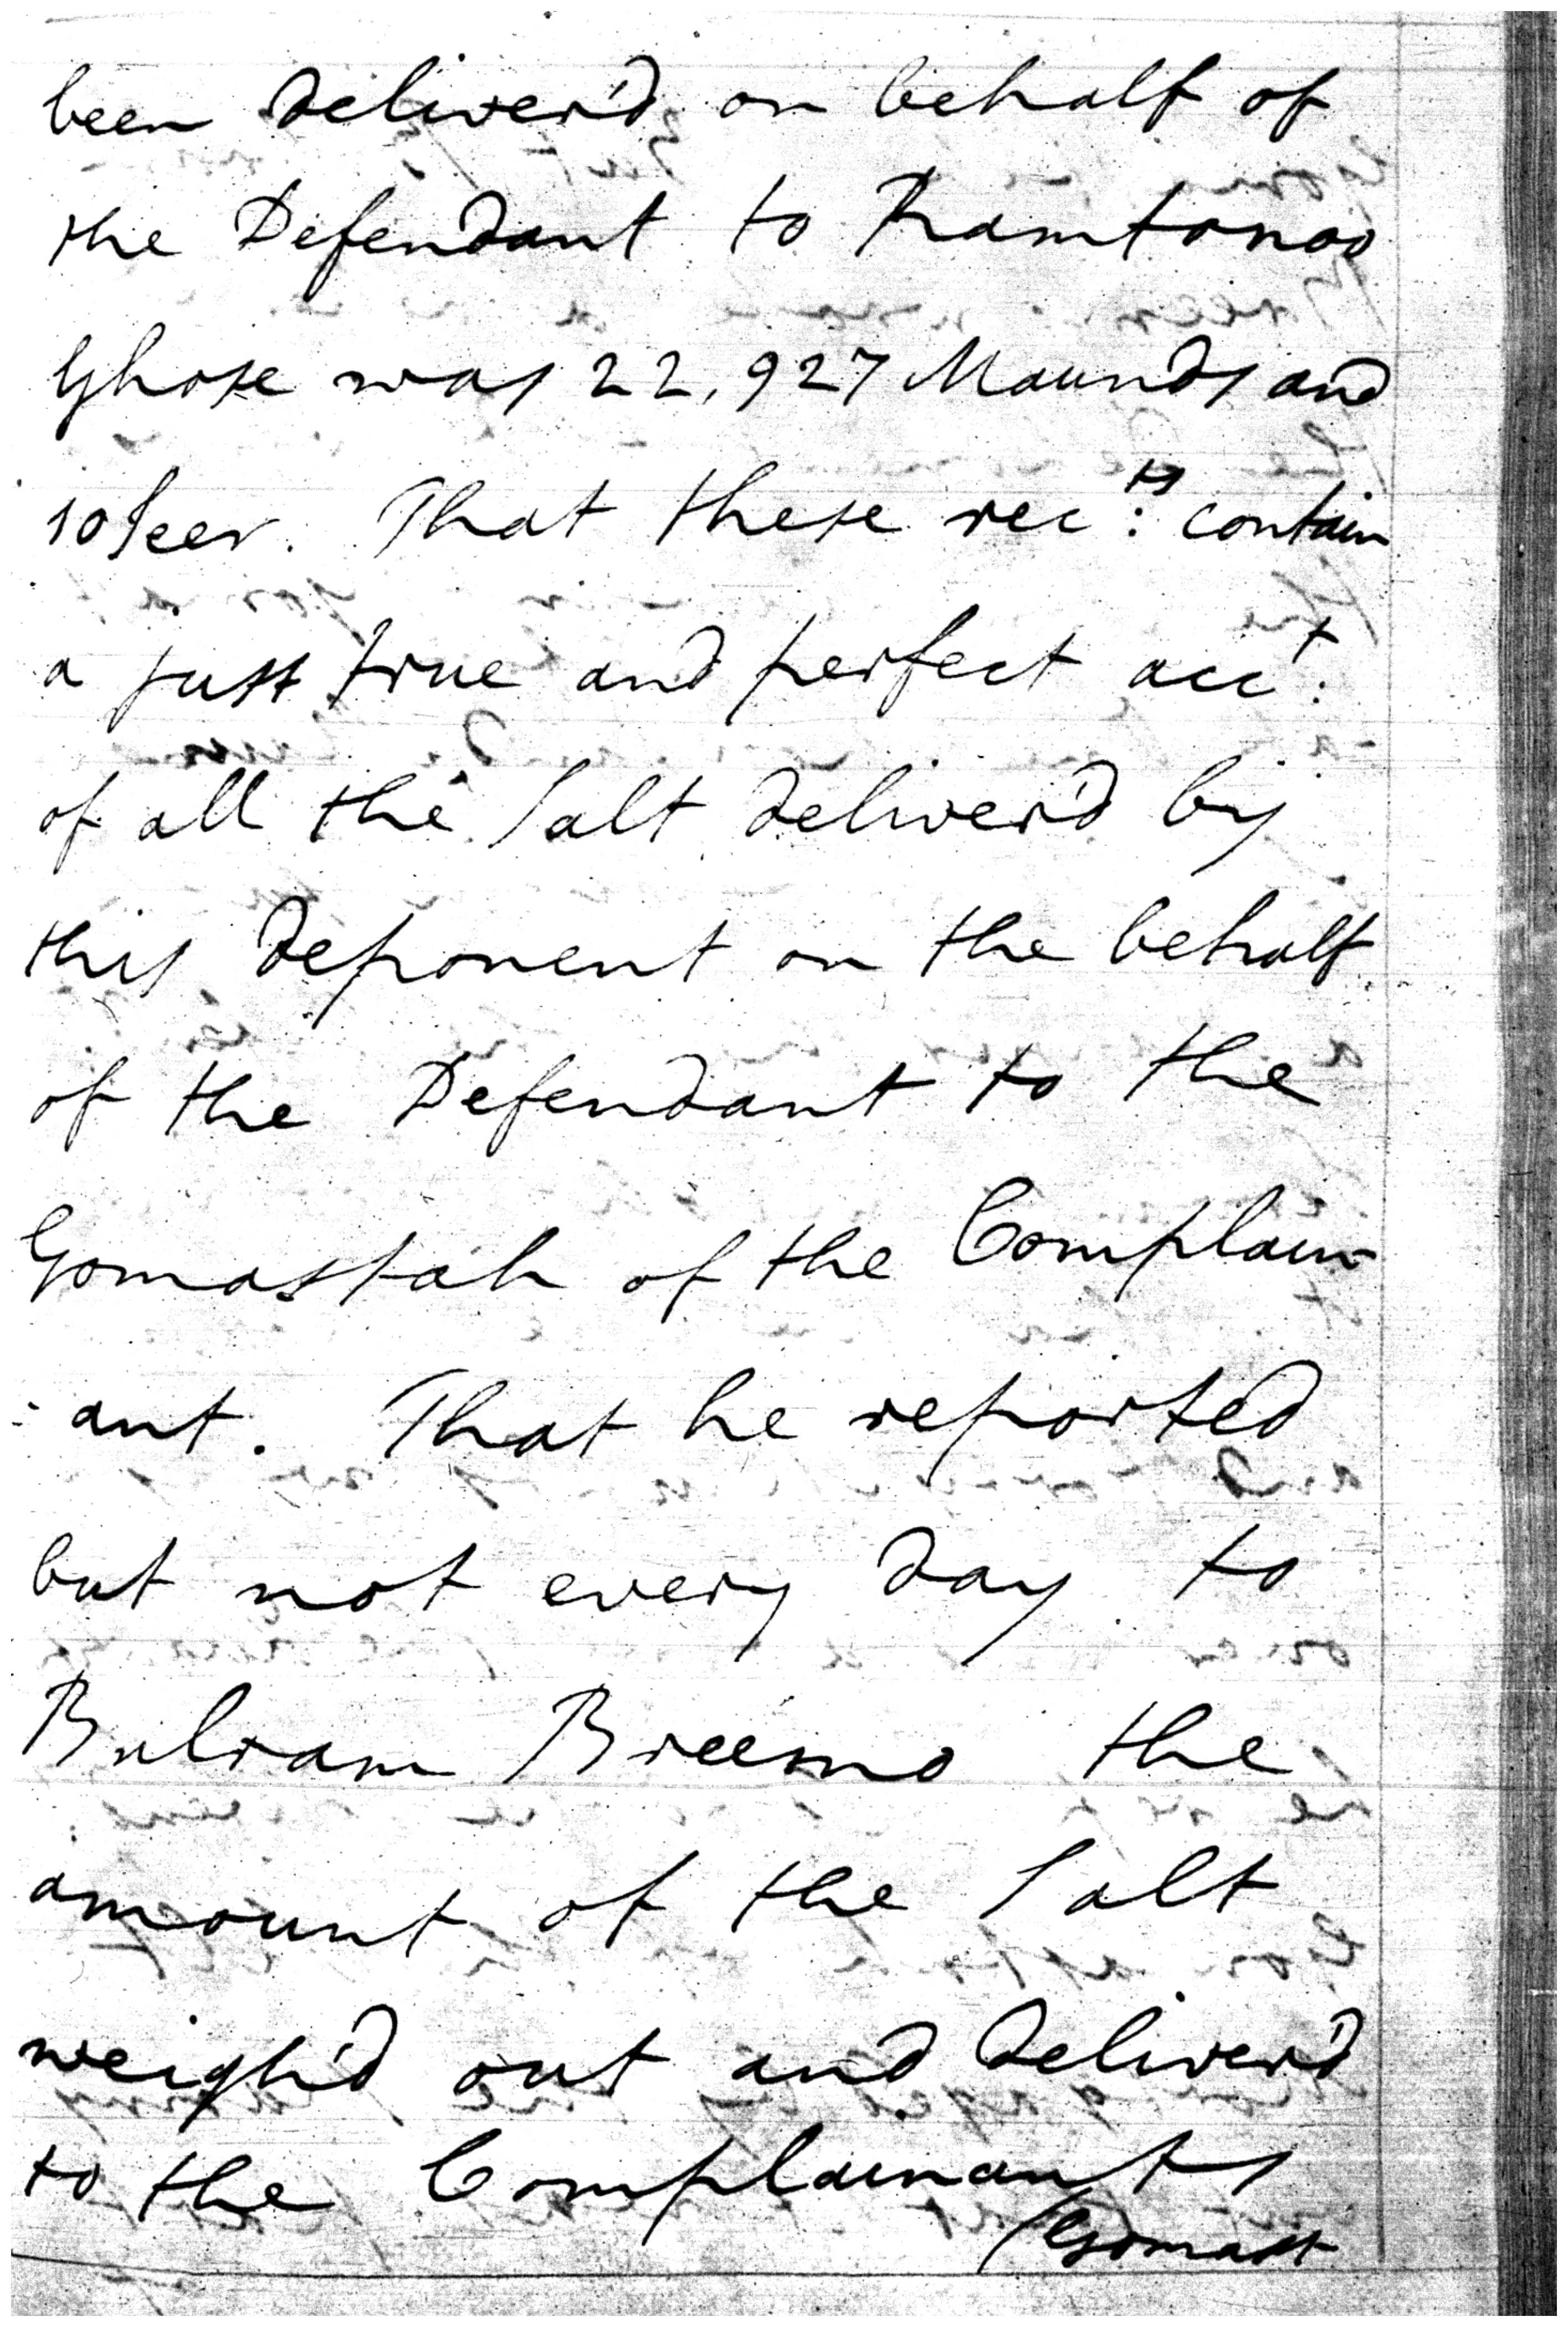 been deliver'd on behalf of
the Defendant to Ramtonoo
Ghose was 22,927 Maunds and
10 Seer. That these rec:ts contain
a just true and perfect acc:t
of all the Salt deliver'd by
this deponent on the behalf
of the Defendant to the
Gomastah of the Complain-
-ant. That he reported
but not every day to
Bulram the
amount of the Salt
weigh'd out and deliver'd
to the Complainants
Gomast